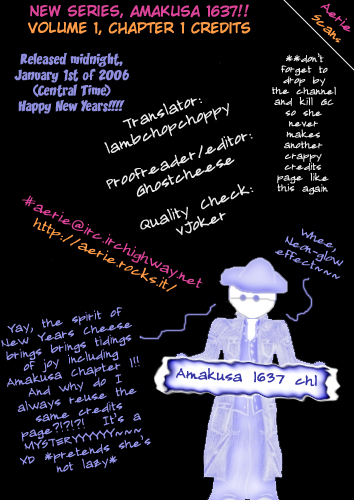 NEW SERIES, AMAKUSA 1637!!
VOLUME 1, CHAPTER 1 CREDITS
Aerie
Scans
Released midnight,
January 1st of 2006
(Central Time)
Happy New Years!!!!
**don't
forget to
drop by
the channel
and kill GC
so she
never
makes
another
crappy
credits
page like
this again
Translator:
lambchopchoppy
Proofreader/editor:
Ghostcheese
Quality check:
vJoker
#aerie@irc.irchighway.net
http://aerie.rocks.it/
Whee,
Neon-glow
effect~~~
Yay, the spirit of
New Years Cheese
brings brings tidings
of joy including
Amakusa chapter 1!!
And why do I
always reuse the
same credits
page?!?!?! It's a
MYSTERYYYYYY~~~
xD *pretends she's
not lazy*
Amakusa 1637 ch1